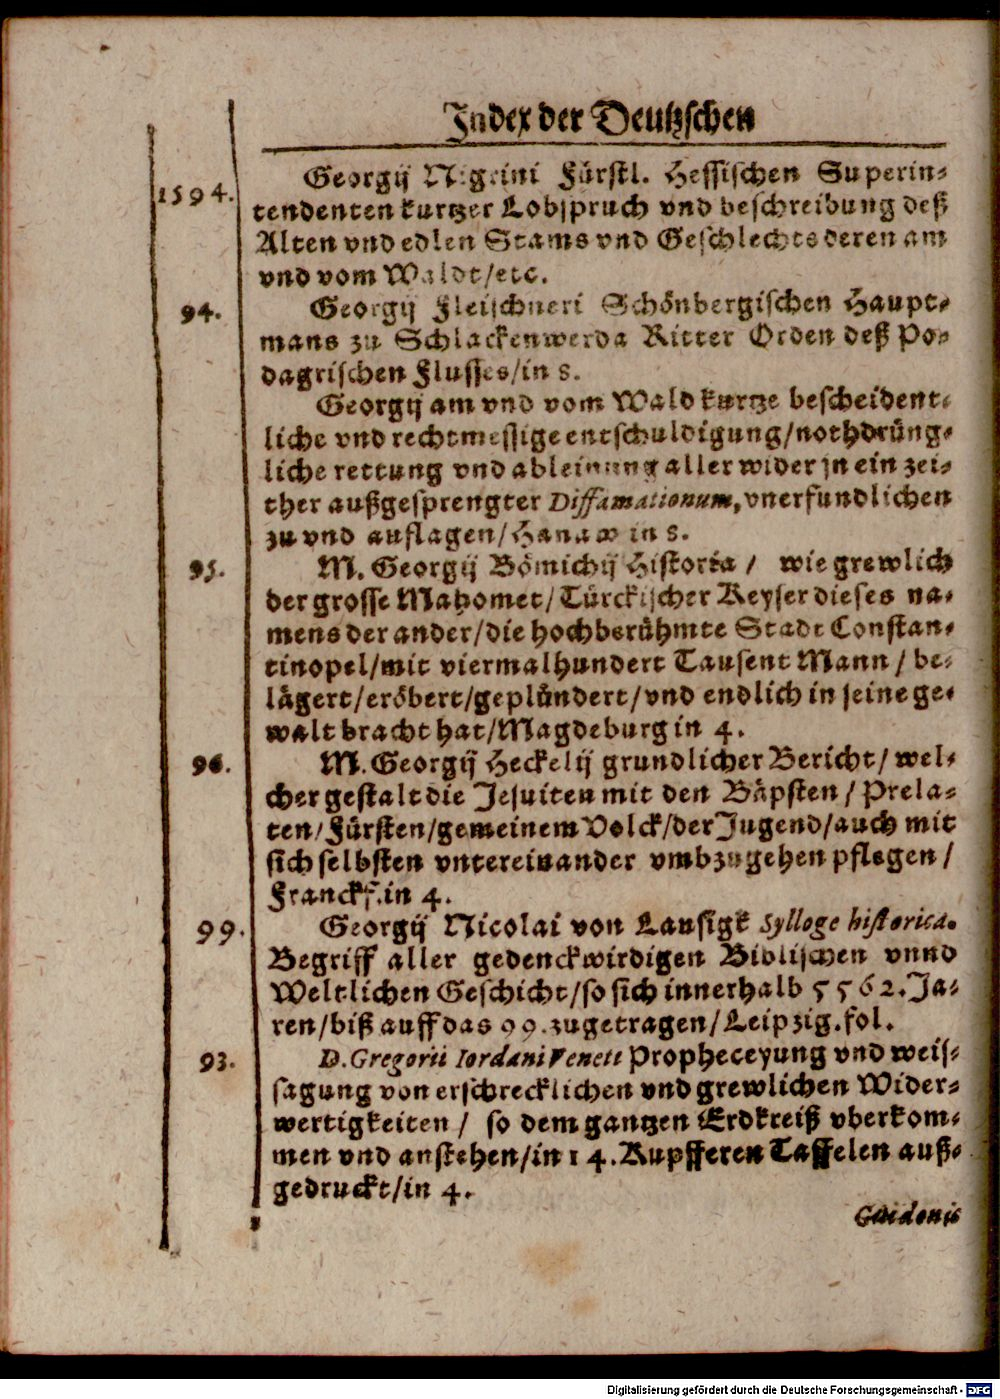 Index der Deutzschen
1594. Georgij Nigrini Fürstl. Hessischen Superin-
tendenten kurtzer Lobspruch vnd beschreibung deß
Alten vnd edlen Stams vnd Geschlechts deren am
vnd vom Waldt/etc.
94. Georgij Fleischneri Schönbergischen Haupt-
mans zu Schlackenwerda Ritter Orden deß Po-
dagrischen Flusses/in 8.
Georgij am vnd vom Wald kurtze bescheident-
liche vnd rechtmessige entschuldigung/nothdrüng-
liche rettung vnd ableinung aller wider jn ein zei-
ther außgesprengter Diffamationum, vnerfundlichen
zu vnd auflagen/Hanaw in 8.
95. M. Georgij Bömichij Historia / wie grewlich
der grosse Mahomet/Türckischer Keyser dieses na-
mens der ander/die hochberühmte Stadt Constan-
tinopel/mit viermalhundert Tausent Mann / be-
lägert/eröbert/geplündert/vnd endlich in seine ge-
walt bracht hat/Magdeburg in 4.
96. M. Georgij Heckelij grundlicher Bericht/ wel-
cher gestalt die Jesuiten mit den Bäpsten / Prela-
ten/Fürsten/gemeinem Volck/der Jugend/auch mit
sich selbsten vntereinander vmbzugehen pflegen /
Franckf.in 4.
99. Georgij Nicolai von Lausigk Sylloge historica.
Begriff aller gedenckwirdigen Biblischen vnnd
Weltlichen Geschicht/so sich innerhalb 5562. Ja-
ren/biß auff das 99. zugetragen/Leipzig.fol.
93. D. Gregorii Iordani Veneti Propheceyung vnd weis-
sagung von erschrecklichen vnd grewlichen Wider-
wertigkeiten / so dem gantzen Erdkreiß vberkom-
men vnd anstehen/in 14. Kupfferen Taffelen auß-
gedruckt/in 4.
Guidonis
Digitalisierung gefördert durch die Deutsche Forschungsgemeinschaft - DFG